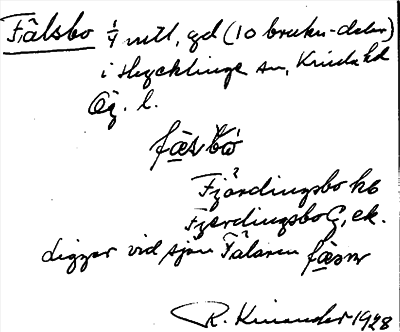 Fålsbo 1/4 mtl, gd (10 bruks-delar)
i Hycklinge sn, Kinda hd
Ög. l.
fås bo
Fjärdingsbo kb
Fjerdingsbo G, ek.
ligger vid sjön Fålaren fåsn
R. Kinander 1928